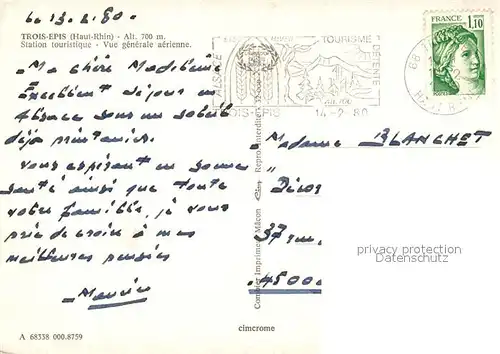 Le 13.2.80.
TROIS-EPIS (Haut-Rhin) - Alt. 700 m.
Station touristique - Vue générale aérienne.
Ma chère Madeleine
Excellent séjour en
Alsace sous un soleil
déjà printanier.
Vous espérant en bonne
santé ainsi que toute
votre famille, je vous
prie de croire à mes
meilleures pensées
Maurice
A 68338 000.8759
ALSACE
TOURISME
DETENTE
ALT. 700
TROIS-EPIS
14-2 80
FRANCE
1,10
68
HAUT RHIN
Madame BLANCHET
37 rue
45000
Combier Imprimeur Mâcon
Repro. Interdite
cimcrome
privacy protection
Datenschutz